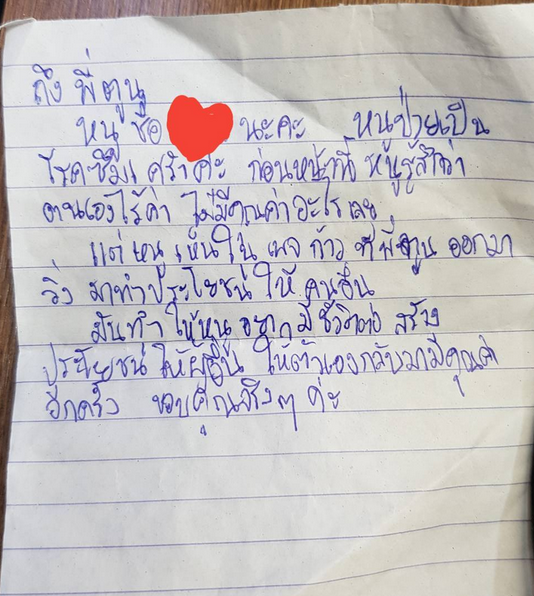 ถึง พี่ตูน
หนู ชื่อ นะคะ หนูป่วยเป็น
โรคซึมเศร้าค่ะ ก่อนหน้านี้ หนูรู้สึกว่า
ตนเองไร้ค่า ไม่มีคุณค่าอะไรเลย
แต่หนูเห็นใน เพจ ก้าว ที่พี่ตูน ออกมา
วิ่ง มาทำประโยชน์ ให้ คนอื่น
มันทำให้หนูอยากมีชีวิตต่อ สร้าง
ประโยชน์ ให้ผู้อื่น ให้ตัวเองกลับมามีคุณค่า
อีกครั้ง ขอบคุณจริงๆ ค่ะ